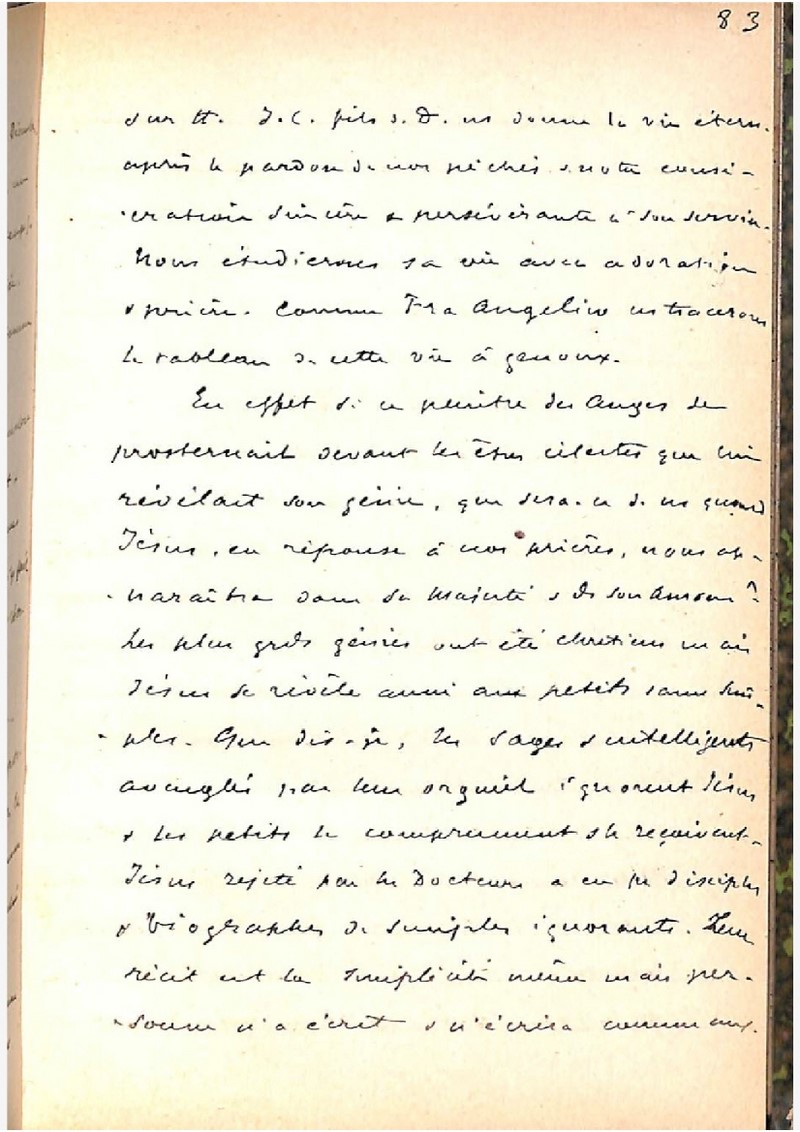 83
sur tt. J.C. fils d. D. ns donne la vie étern.
après le pardon de nos péchés & notre consé-
cration sincère & persévérante à son service.
Nous étudierons sa vie avec adoration
& prière. Comme Fra Angelico ns tracerons
le tableau de cette vie à genoux.
En effet si ce peintre des Anges se
prosternait devant les êtres célestes que lui
révélait son génie, que sera-ce de ns quand
Jésus, en réponse à nos prières, nous ap-
paraîtra dans sa Majesté & ds son Amour?
Les plus grds génies ont été chrétiens mais
Jésus se révèle aussi aux petits sans sim-
ples. Que dis-je, les sages & intelligents
aveuglés par leur orgueil ignorent Jésus
& les petits le comprennent & le reçoivent.
Jésus rejeté par les Docteurs a eu pr disciples
& biographes de simples ignorants. Leur
récit est la simplicité même mais per-
sonne n'a écrit & n'écrira comme eux.